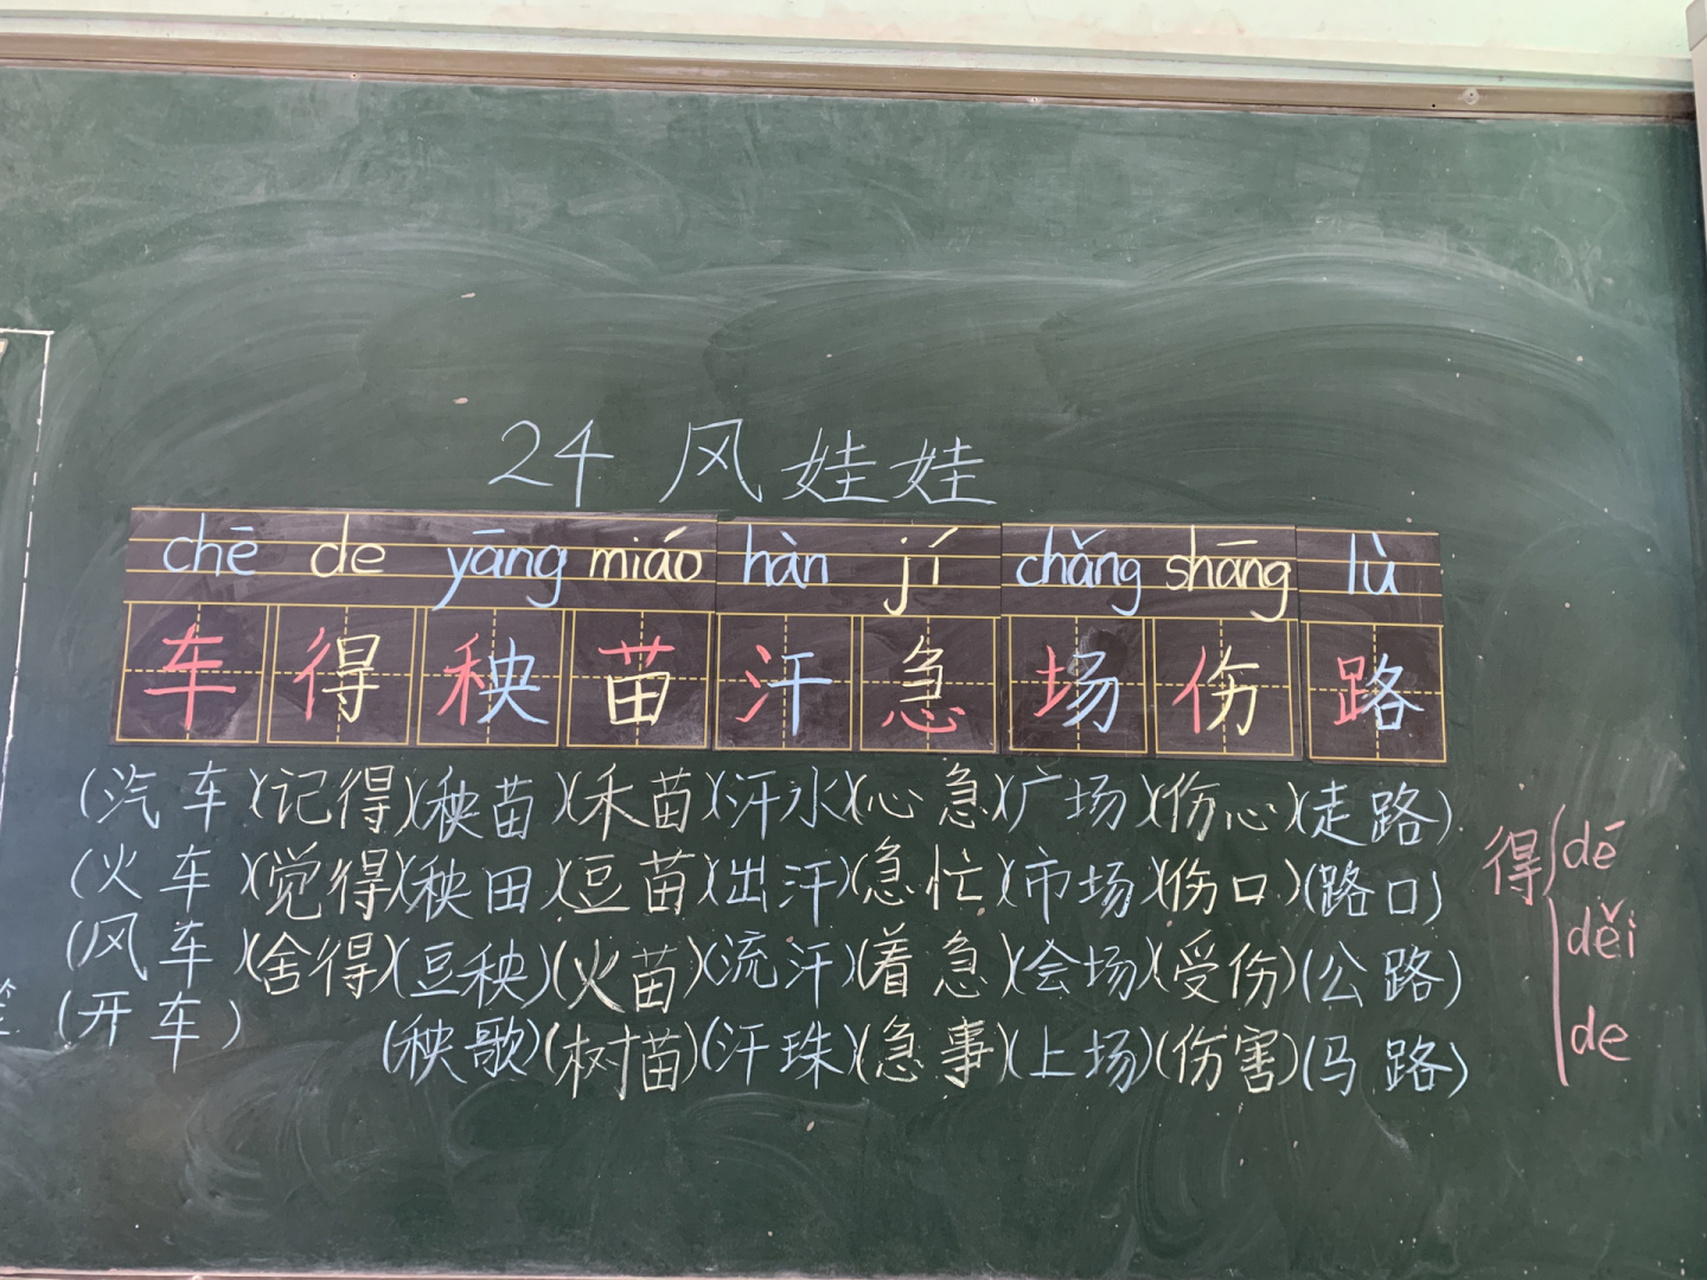 24 风娃娃
chē de yāng miáo hàn jí chǎng shāng lù
车 得 秧 苗 汗 急 场 伤 路
(汽车)(记得)(秧苗)(禾苗)(汗水)(心急)(广场)(伤心)(走路)
(火车)(觉得)(秧田)(豆苗)(出汗)(急忙)(市场)(伤口)(路口)
(风车)(舍得)(豆秧)(火苗)(流汗)(着急)(会场)(受伤)(公路)
(开车)
(秧歌)(树苗)(汗珠)(急事)(上场)(伤害)(马路)
得
dē
děi
de